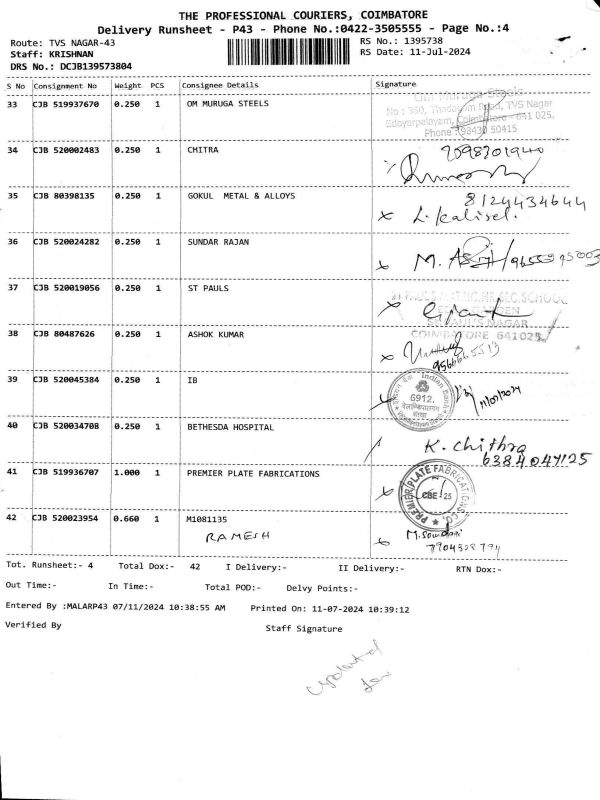 THE PROFESSIONAL COURIERS, COIMBATORE
Delivery Runsheet - P43 - Phone No.:0422-3505555 - Page No.:4
Route: TVS NAGAR-43 RS No.: 1395738
Staff: KRISHNAN RS Date: 11-Jul-2024
DRS No.: DCJB139573804
S No Consignment No Weight PCS Consignee Details Signature
33 CJB 519937670 0.250 1 OM MURUGA STEELS
Om Muruga Steels
No : 350, Thadagam Road, TVS Nagar
Edayarpalayam, Coimbatore - 641 025.
Phone : 98430 50415
34 CJB 520002483 0.250 1 CHITRA
35 CJB 80398135 0.250 1 GOKUL METAL & ALLOYS 8124434644
36 CJB 520024282 0.250 1 SUNDAR RAJAN
37 CJB 520019056 0.250 1 ST PAULS
NAGAR
COIMBATORE 641025
38 CJB 80487626 0.250 1 ASHOK KUMAR
39 CJB 520045384 0.250 1 IB
Indian Bank
6912.
11/07/2024
40 CJB 520034708 0.250 1 BETHESDA HOSPITAL
K. Chithra
6384047125
41 CJB 519936707 1.000 1 PREMIER PLATE FABRICATIONS
PREMIER PLATE FABRICATIONS CO.
CBE - 25
42 CJB 520023954 0.660 1 M1081135
RAMESH
7904328794
Tot. Runsheet:- 4 Total Dox:- 42 I Delivery:- II Delivery:- RTN Dox:-
Out Time:- In Time:- Total POD:- Delvy Points:-
Entered By :MALARP43 07/11/2024 10:38:55 AM Printed On: 11-07-2024 10:39:12
Verified By Staff Signature